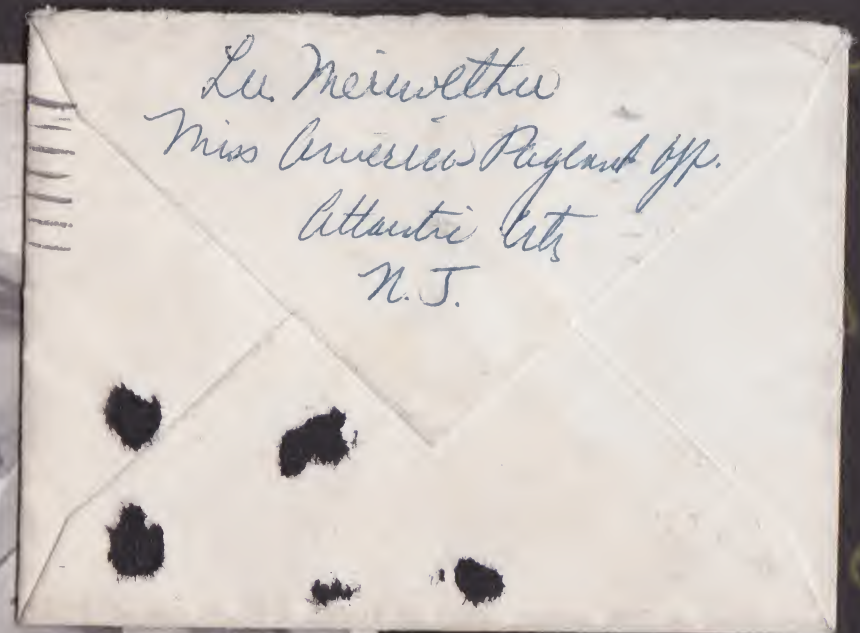 Lee Meriwether
Miss America Pageant Off.
Atlantic City
N.J.